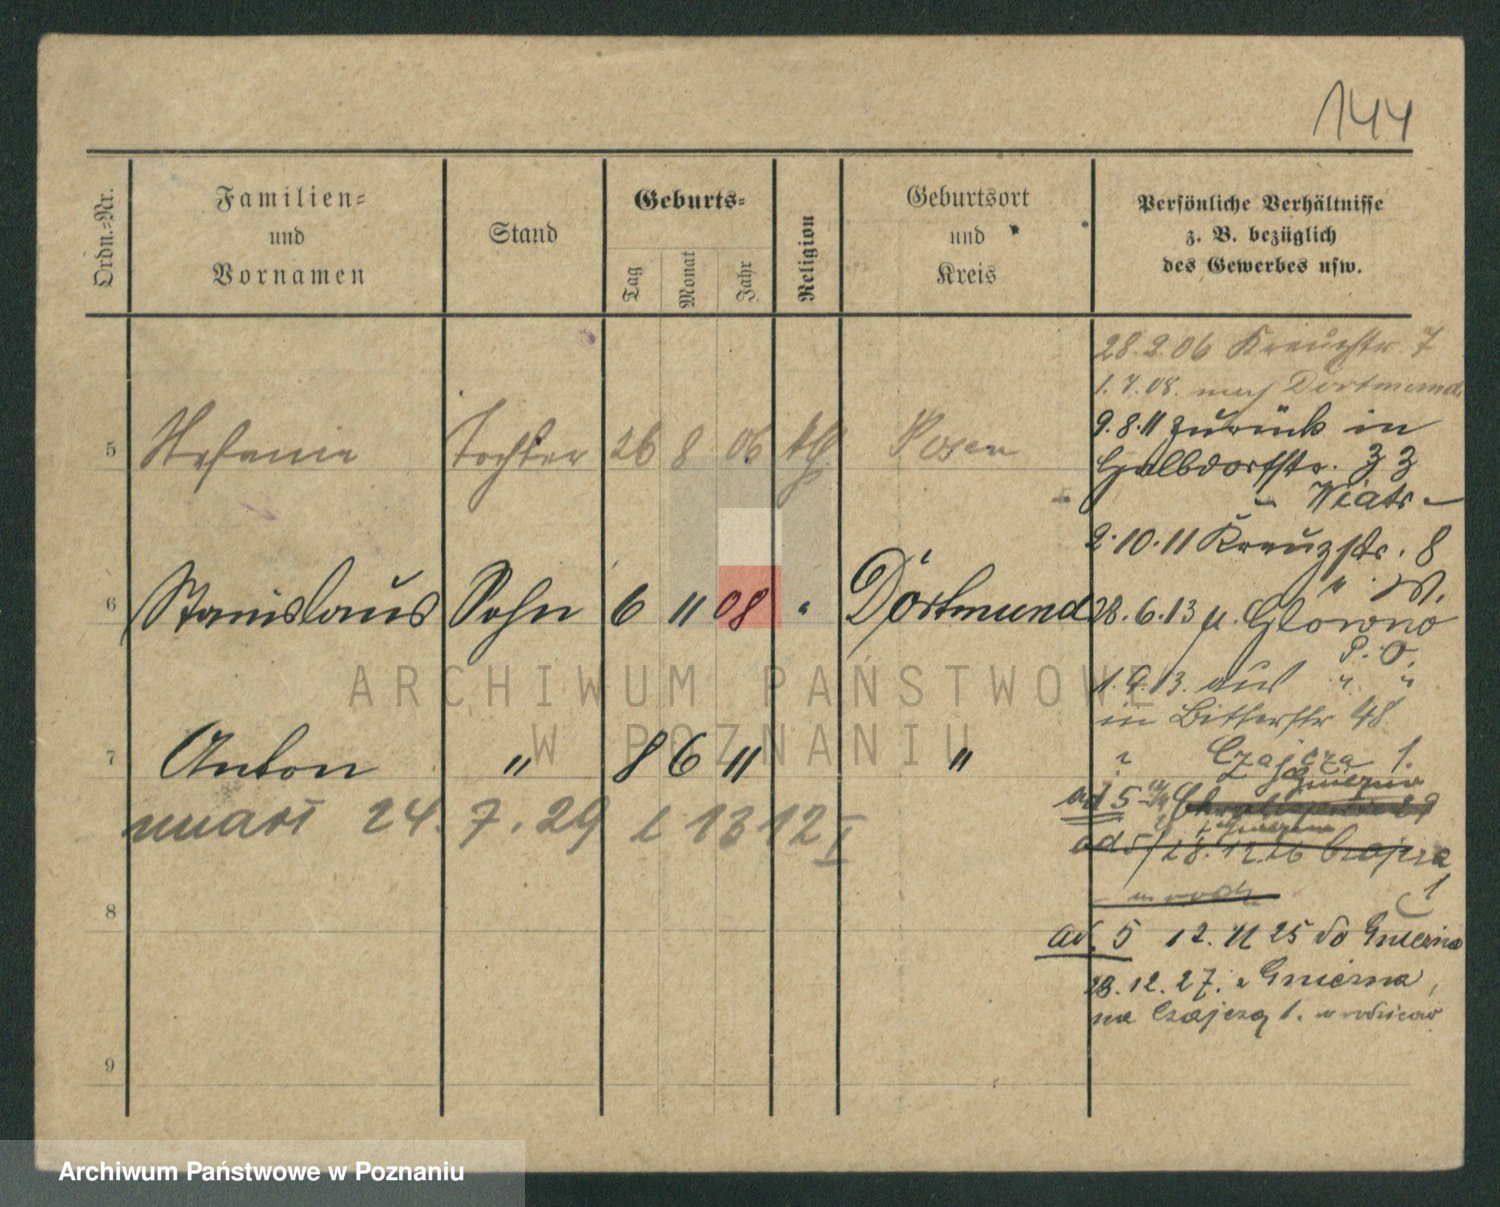 144
Ordn.-Nr.
Familien-
und
Vornamen
Stand
Geburts-
Tag
Monat
Jahr
Religion
Geburtsort
und
Kreis
Persönliche Verhältnisse
z. B. bezüglich
des Gewerbes usw.
28.2.06 Kreuzstr. 7
1.7.08. nach Dortmund
9.8.11 zurück in
5 Stefanie Tochter 26 8 06 kth. Posen
33
2.10.11 Kreuzstr. 8
" W.
6 Stanislaus Sohn 6 11 08 " Dortmund
28.6.13 n. Glowno
P. O.
1.9.13. aus " "
in Bitterstr 48.
7 Anton " 8 6 11 "
" Czajcza 1.
Gniezna
ad 5
24.7.29 1312 I
ad 5 28.12.26 Czajcza
1
8
ad. 5 12.11 25 do Gniezna
28.12.27. z Gniezna,
na Czajczą 1. u rodziców
9
ARCHIWUM PAŃSTWOWE
W POZNANIU
Archiwum Państwowe w Poznaniu